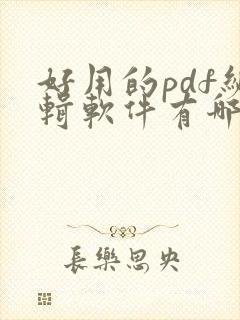 好用的pdf編
輯軟件有哪
長樂思央